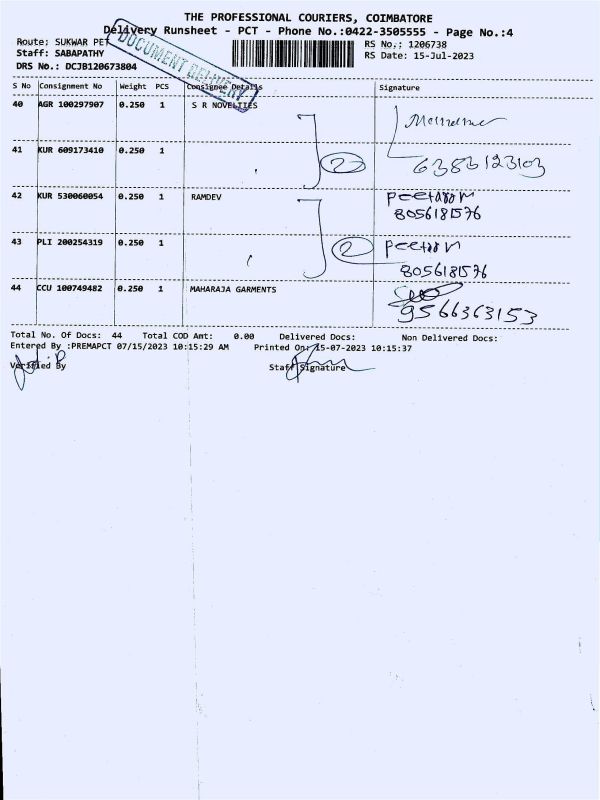 THE PROFESSIONAL COURIERS, COIMBATORE
Delivery Runsheet - PCT - Phone No.:0422-3505555 - Page No.:4
Route: SUKWAR PET
RS No.: 1206738
Staff: SABAPATHY
RS Date: 15-Jul-2023
DRS No.: DCJB120673804
DOCUMENT DELIVERY
S No Consignment No Weight PCS Consignee Details Signature
40 AGR 100297907 0.250 1 S R NOVELTIES
41 KUR 609173410 0.250 1 2 6383123103
42 KUR 530060054 0.250 1 RAMDEV
8056181576
43 PLI 200254319 0.250 1 2
8056181576
44 CCU 100749482 0.250 1 MAHARAJA GARMENTS 9566363153
Total No. Of Docs: 44 Total COD Amt: 0.00 Delivered Docs: Non Delivered Docs:
Entered By :PREMAPCT 07/15/2023 10:15:29 AM Printed On: 15-07-2023 10:15:37
Verified By Staff Signature